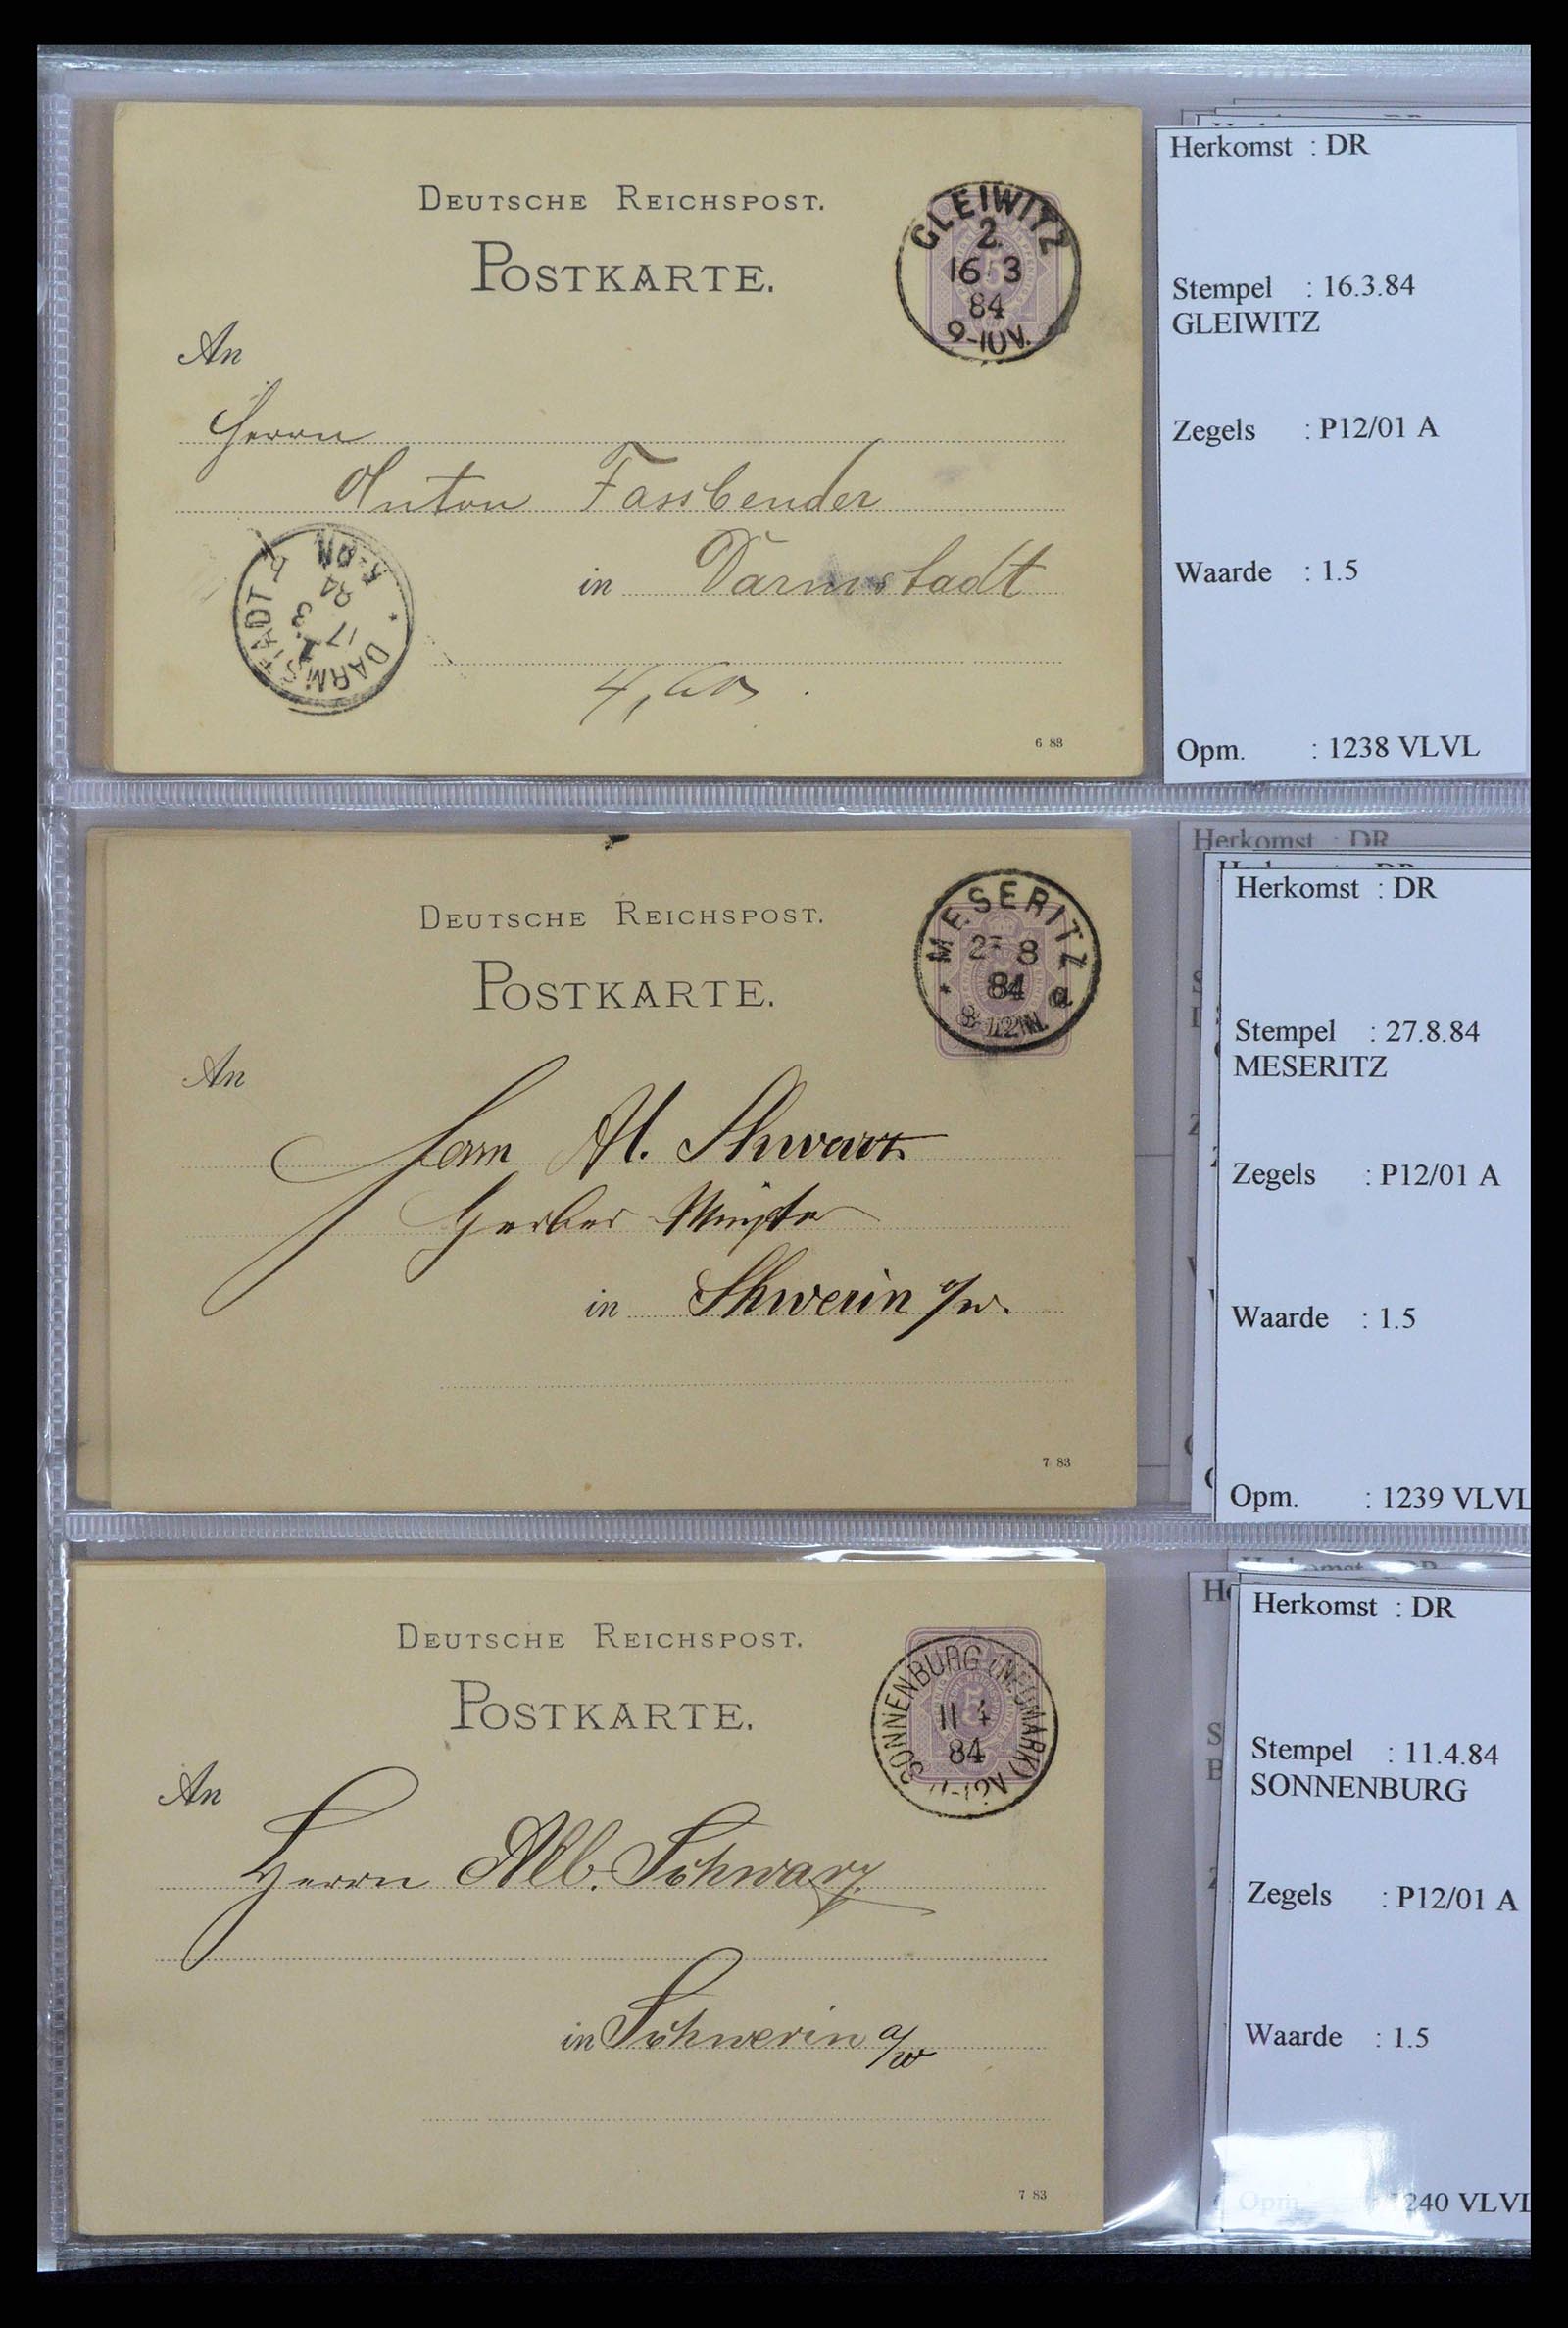 DEUTSCHE REICHSPOST.
POSTKARTE.
GLEIWITZ
2.
16 3
84
9-10V.
An
Herrn
Anton Fassbender
in Darmstadt
DARMSTADT
17 3
84
6 83
Herkomst : DR
Stempel : 16.3.84
GLEIWITZ
Zegels : P12/01 A
Waarde : 1.5
Opm. : 1238 VLVL
DEUTSCHE REICHSPOST.
POSTKARTE.
* MESERITZ a
8
84
An
Herrn Al. Schwarz
Gerber Meister
in Schwerin a/w.
7 83
Herkomst : DR
Herkomst : DR
Stempel : 27.8.84
MESERITZ
Zegels : P12/01 A
Waarde : 1.5
Opm. : 1239 VLVL
DEUTSCHE REICHSPOST.
POSTKARTE.
SONNENBURG (NEUMARK)
11 4
84
An
Herrn Alb. Schwarz
in Schwerin a/w
7 83
Herkomst : DR
Stempel : 11.4.84
SONNENBURG
Zegels : P12/01 A
Waarde : 1.5
Opm. 240 VLVL